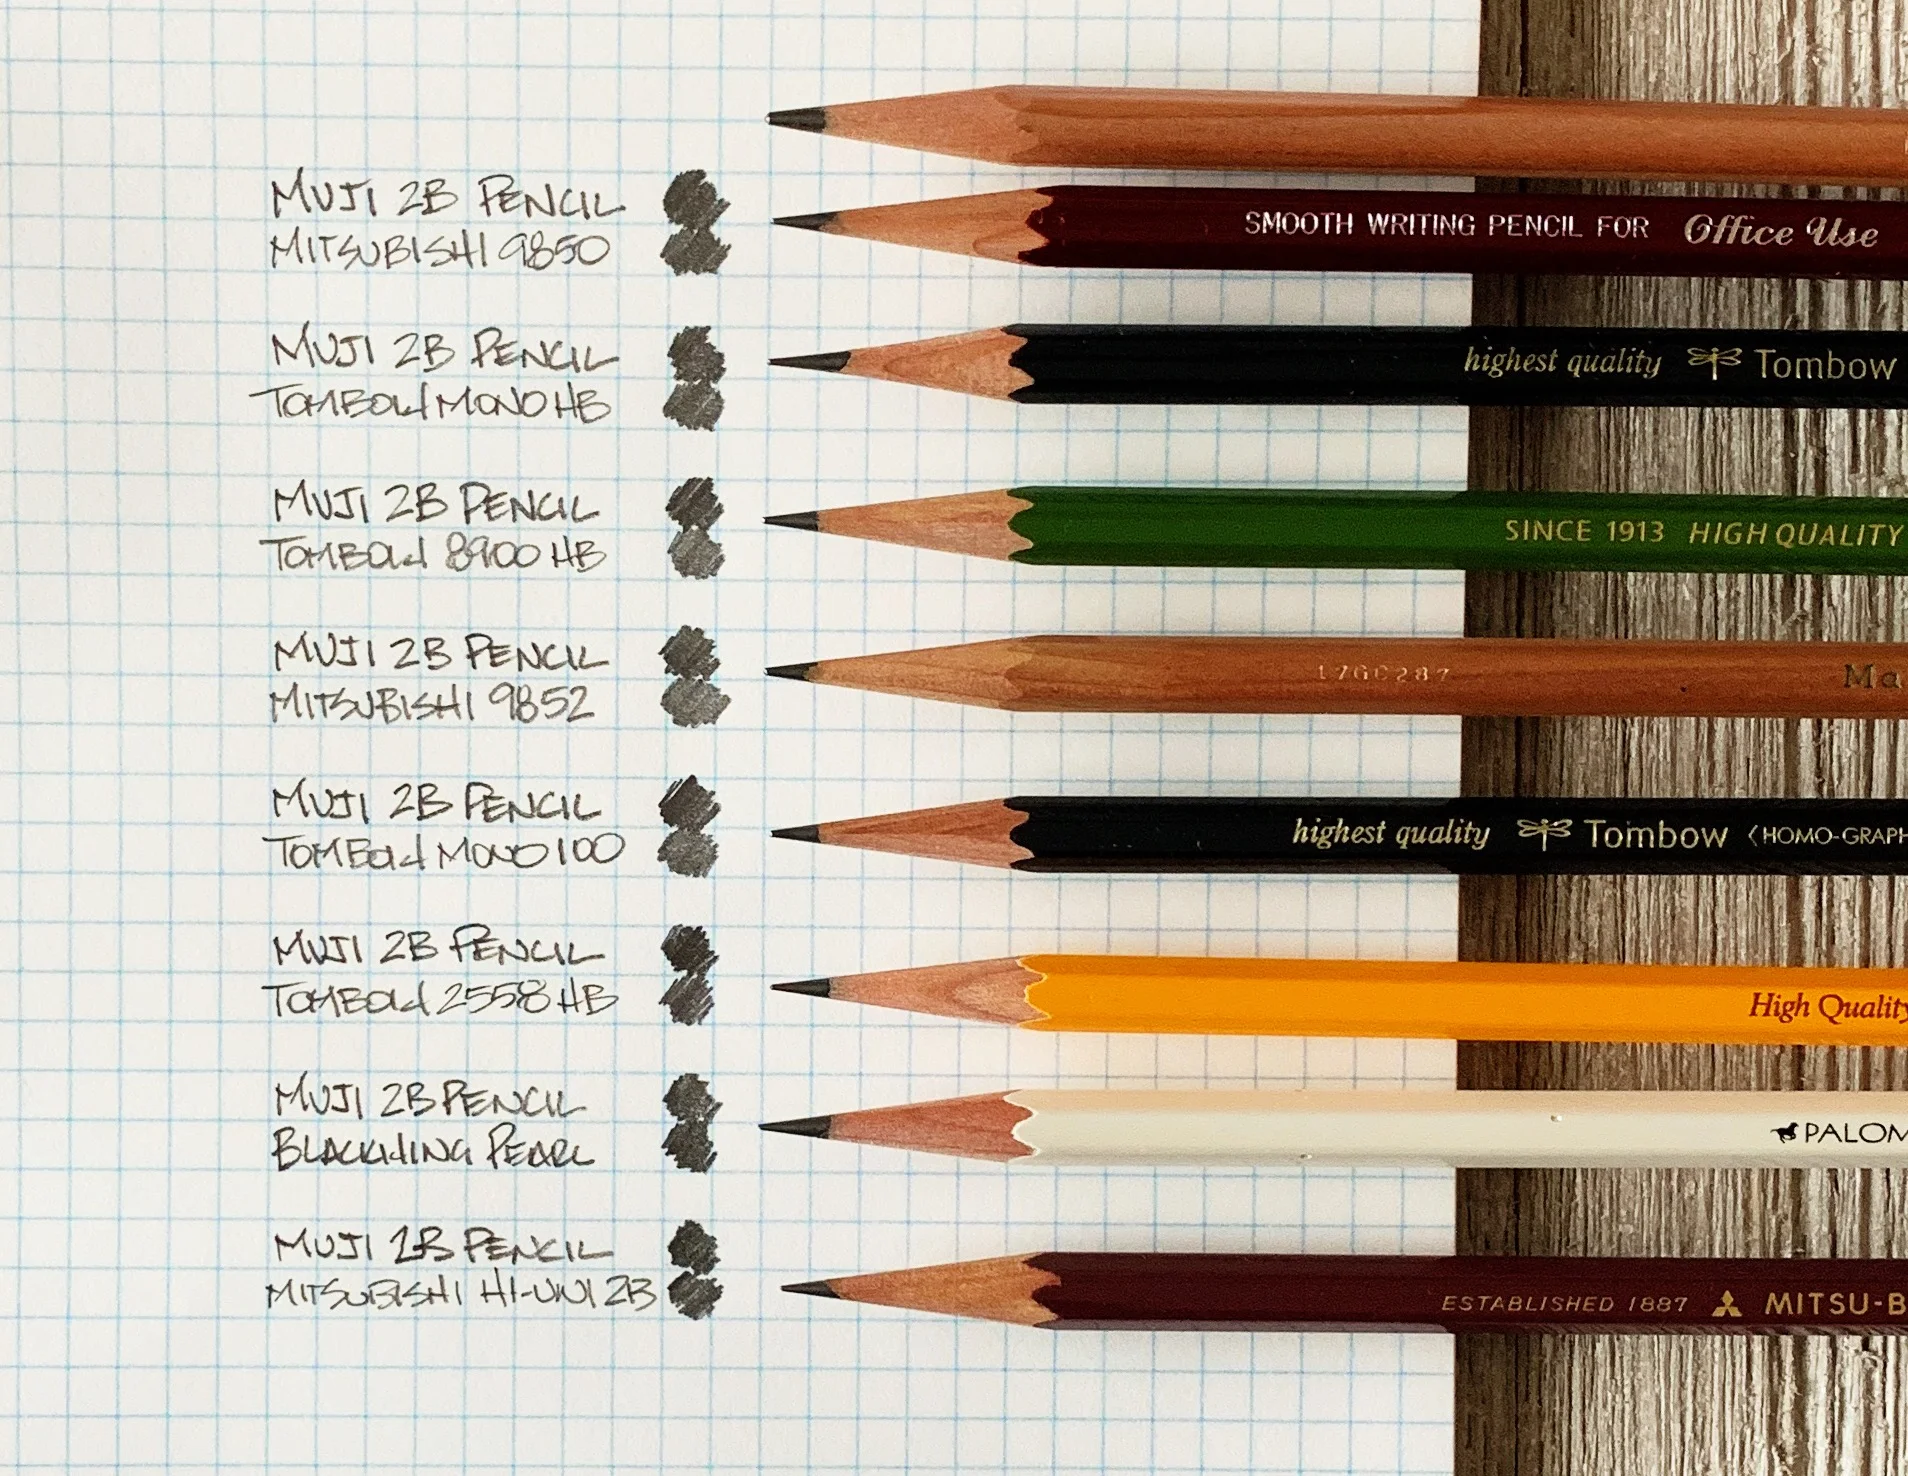 MUJI 2B PENCIL
MITSUBISHI 9850
SMOOTH WRITING PENCIL FOR Office Use
MUJI 2B PENCIL
TOMBOW MONO HB
highest quality Tombow
MUJI 2B PENCIL
TOMBOW 8900 HB
SINCE 1913 HIGH QUALITY
MUJI 2B PENCIL
MITSUBISHI 9852
17GC287 Ma
MUJI 2B PENCIL
TOMBOW MONO 100
highest quality Tombow <HOMO-GRAPH
MUJI 2B PENCIL
TOMBOW 2558 HB
High Quality
MUJI 2B PENCIL
BLACKWING PEARL
PALOM
MUJI 2B PENCIL
MITSUBISHI HI-UNI 2B
ESTABLISHED 1887 MITSU-B